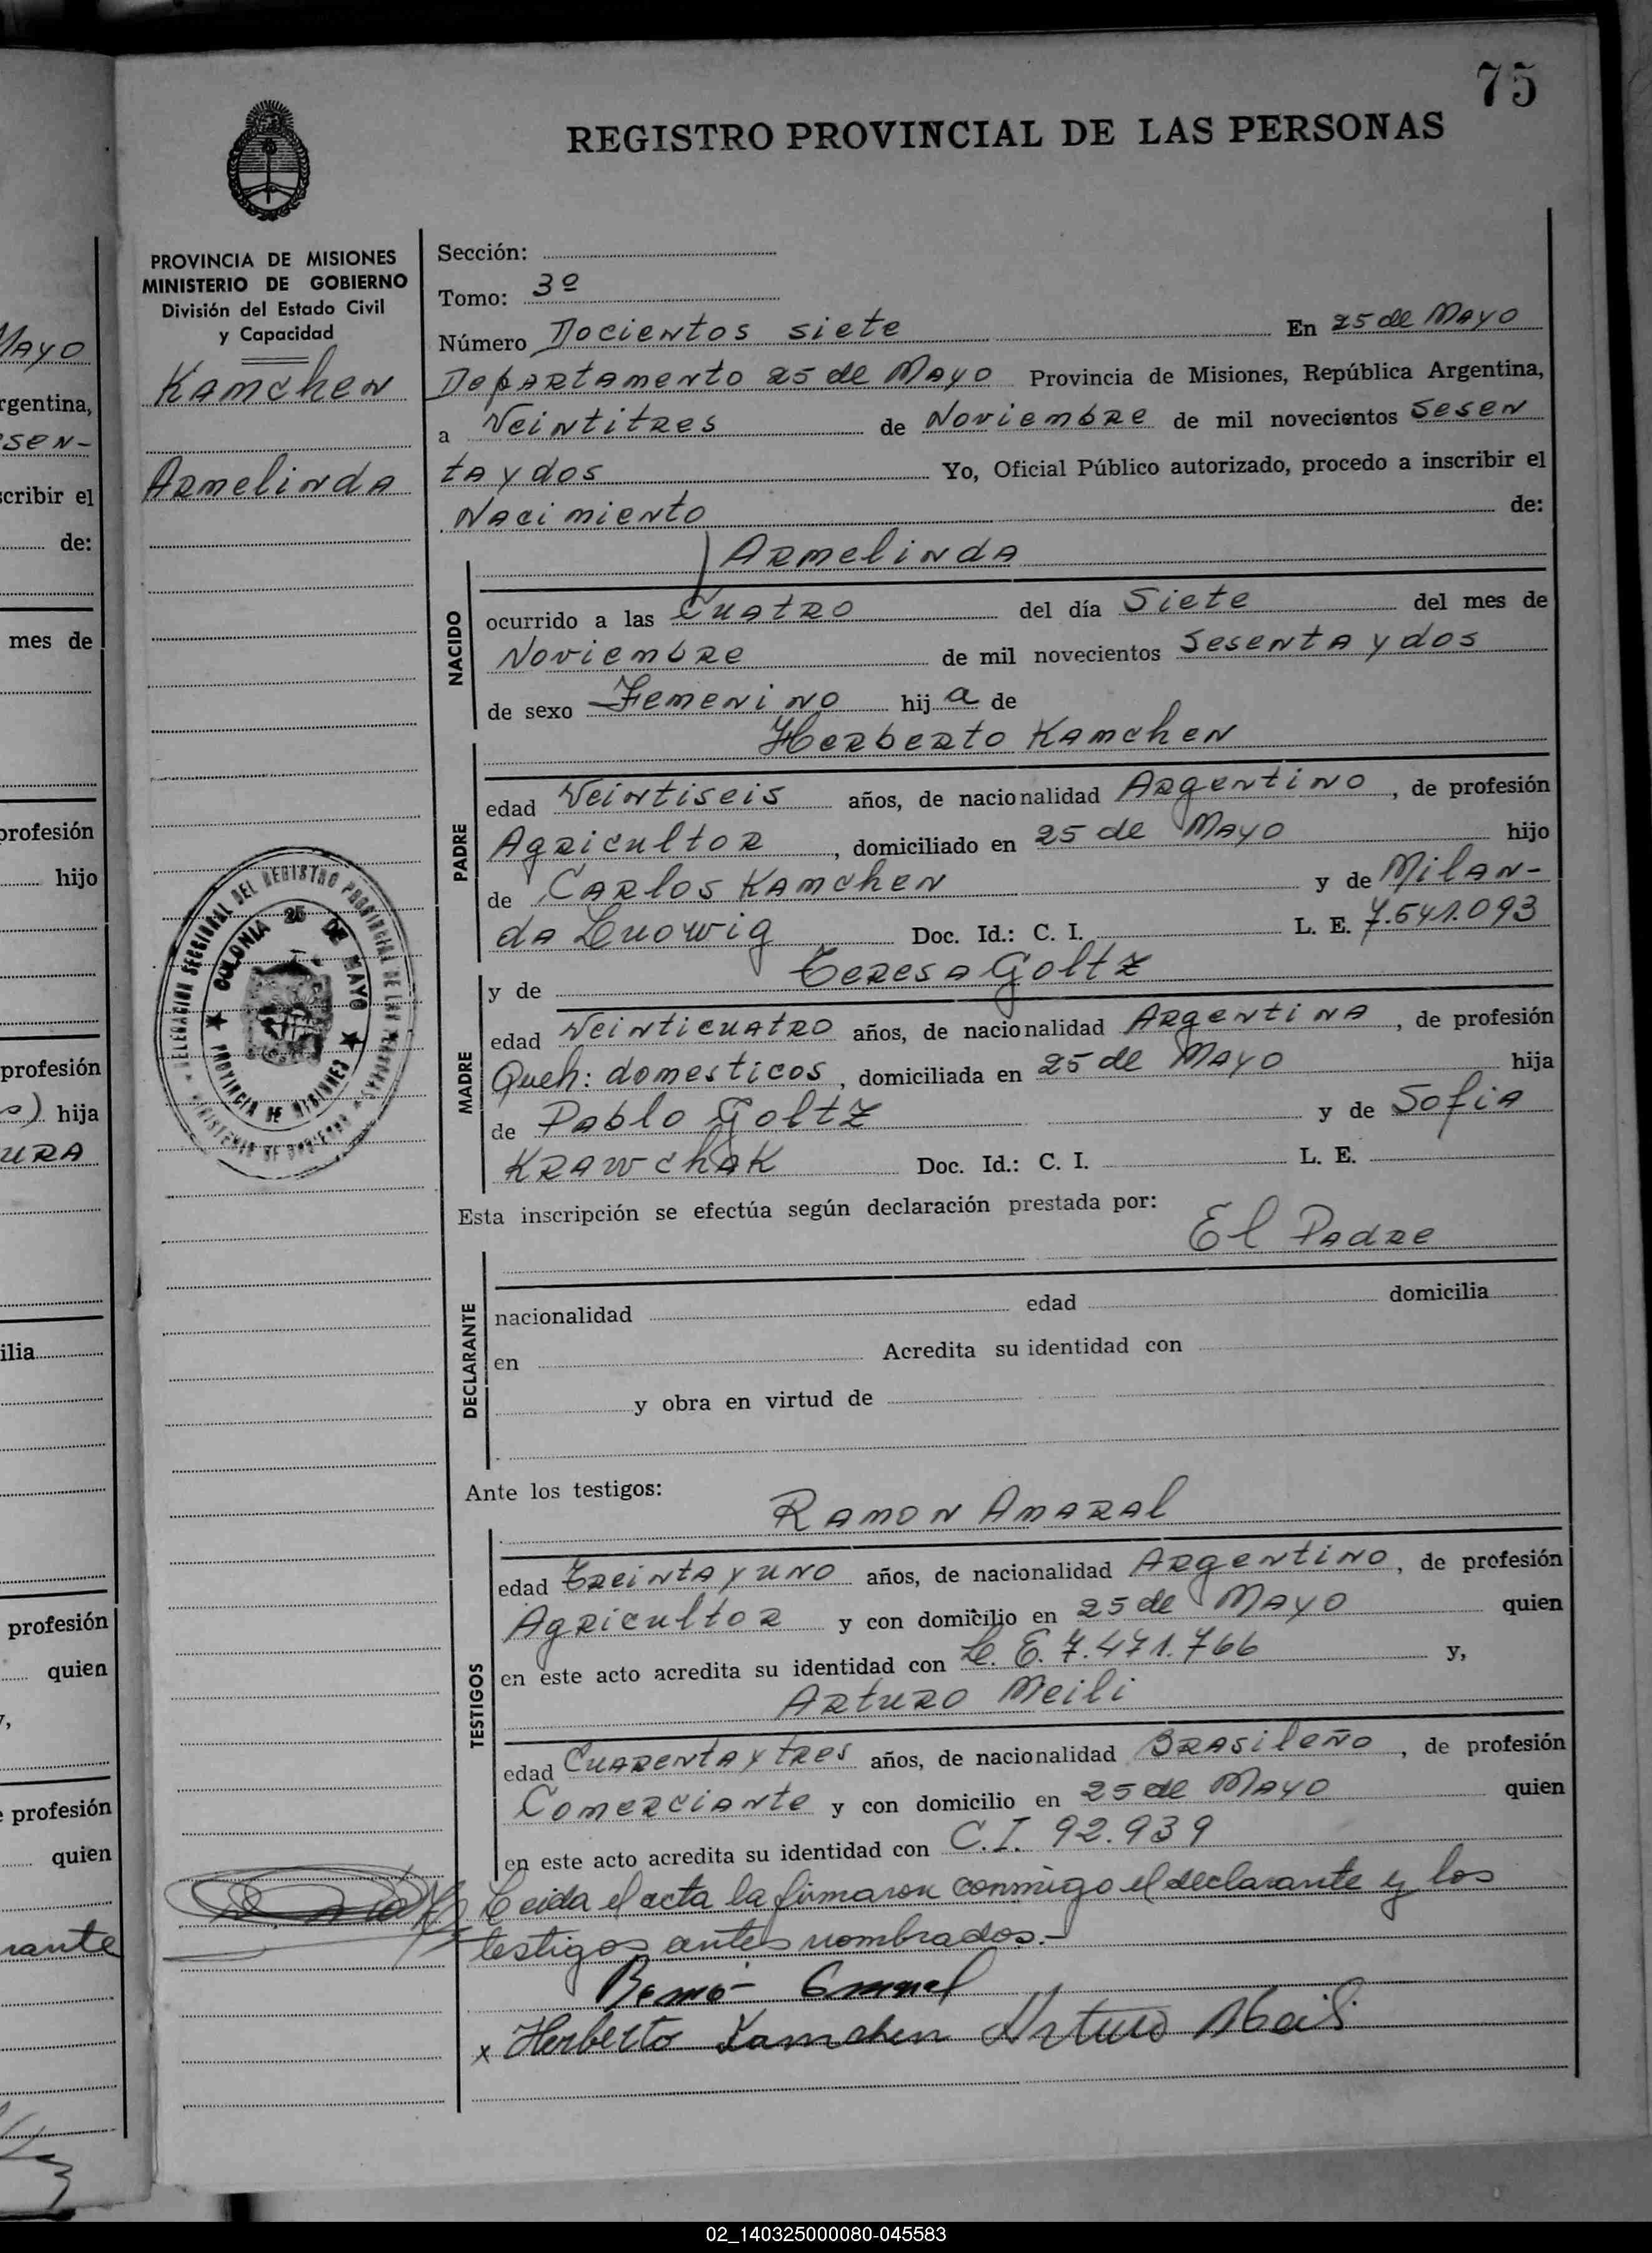 75
REGISTRO PROVINCIAL DE LAS PERSONAS
PROVINCIA DE MISIONES
MINISTERIO DE GOBIERNO
División del Estado Civil
y Capacidad
Kamchen
Armelinda
COLONIA 25 DE MAYO
PROVINCIA DE MISIONES
DELEGACION SECCIONAL DEL REGISTRO PROVINCIAL DE LAS PERSONAS
MINISTERIO DE GOBIERNO
Sección:
Tomo: 3º
Número Docientos siete En 25 de Mayo
Departamento 25 de Mayo Provincia de Misiones, República Argentina,
a Veintitres de Noviembre de mil novecientos Sesen
ta y dos Yo, Oficial Público autorizado, procedo a inscribir el
Nacimiento de:
Armelinda
NACIDO
ocurrido a las Cuatro del día Siete del mes de
Noviembre de mil novecientos Sesenta y dos
de sexo Femenino hij a de
Herberto Kamchen
PADRE
edad Veintiseis años, de nacionalidad Argentino, de profesión
Agricultor, domiciliado en 25 de Mayo hijo
de Carlos Kamchen y de Milan-
da Luowig Doc. Id.: C. I. L. E. 7.541.093
y de Teresa Goltz
MADRE
edad Veinticuatro años, de nacionalidad Argentina, de profesión
Queh: domesticos, domiciliada en 25 de Mayo hija
de Pablo Goltz y de Sofia
Krawchak Doc. Id.: C. I. L. E.
Esta inscripción se efectúa según declaración prestada por:
El Padre
DECLARANTE
nacionalidad edad domicilia
en Acredita su identidad con
y obra en virtud de
Ante los testigos:
Ramon Amaral
TESTIGOS
edad Treinta y uno años, de nacionalidad Argentino, de profesión
Agricultor y con domicilio en 25 de Mayo quien
en este acto acredita su identidad con L. E. 7.471.766 y,
Arturo Meili
edad Cuarenta y tres años, de nacionalidad Brasileño, de profesión
Comerciante y con domicilio en 25 de Mayo quien
en este acto acredita su identidad con C.I. 92.939
Leida el acta la firmaron conmigo el declarante y los
testigos antes nombrados.-
x Herberto Kamchen Arturo Meili
Mayo
rgentina,
sen-
scribir el
de:
mes de
profesión
hijo
profesión
o) hija
ura
ilia
profesión
quien
y,
e profesión
quien
rante
02_140325000080-045583